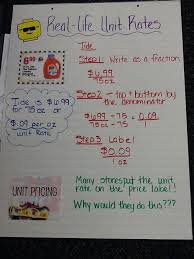 Real-Life Unit Rates
Tide
Step 1: Write as a fraction
$6.99
75 oz
6.99
Tide
Step 2: ÷ top & bottom by
the denominator
Tide is $6.99
for 75 oz
or
$.09 per oz
unit Rate
$6.99 ÷ 75 = $0.09
75 oz ÷ 75 = 1
Step 3: Label
$0.09
1 oz
UNIT PRICING
Many stores put the unit
rate on the price label!
Why would they do this???